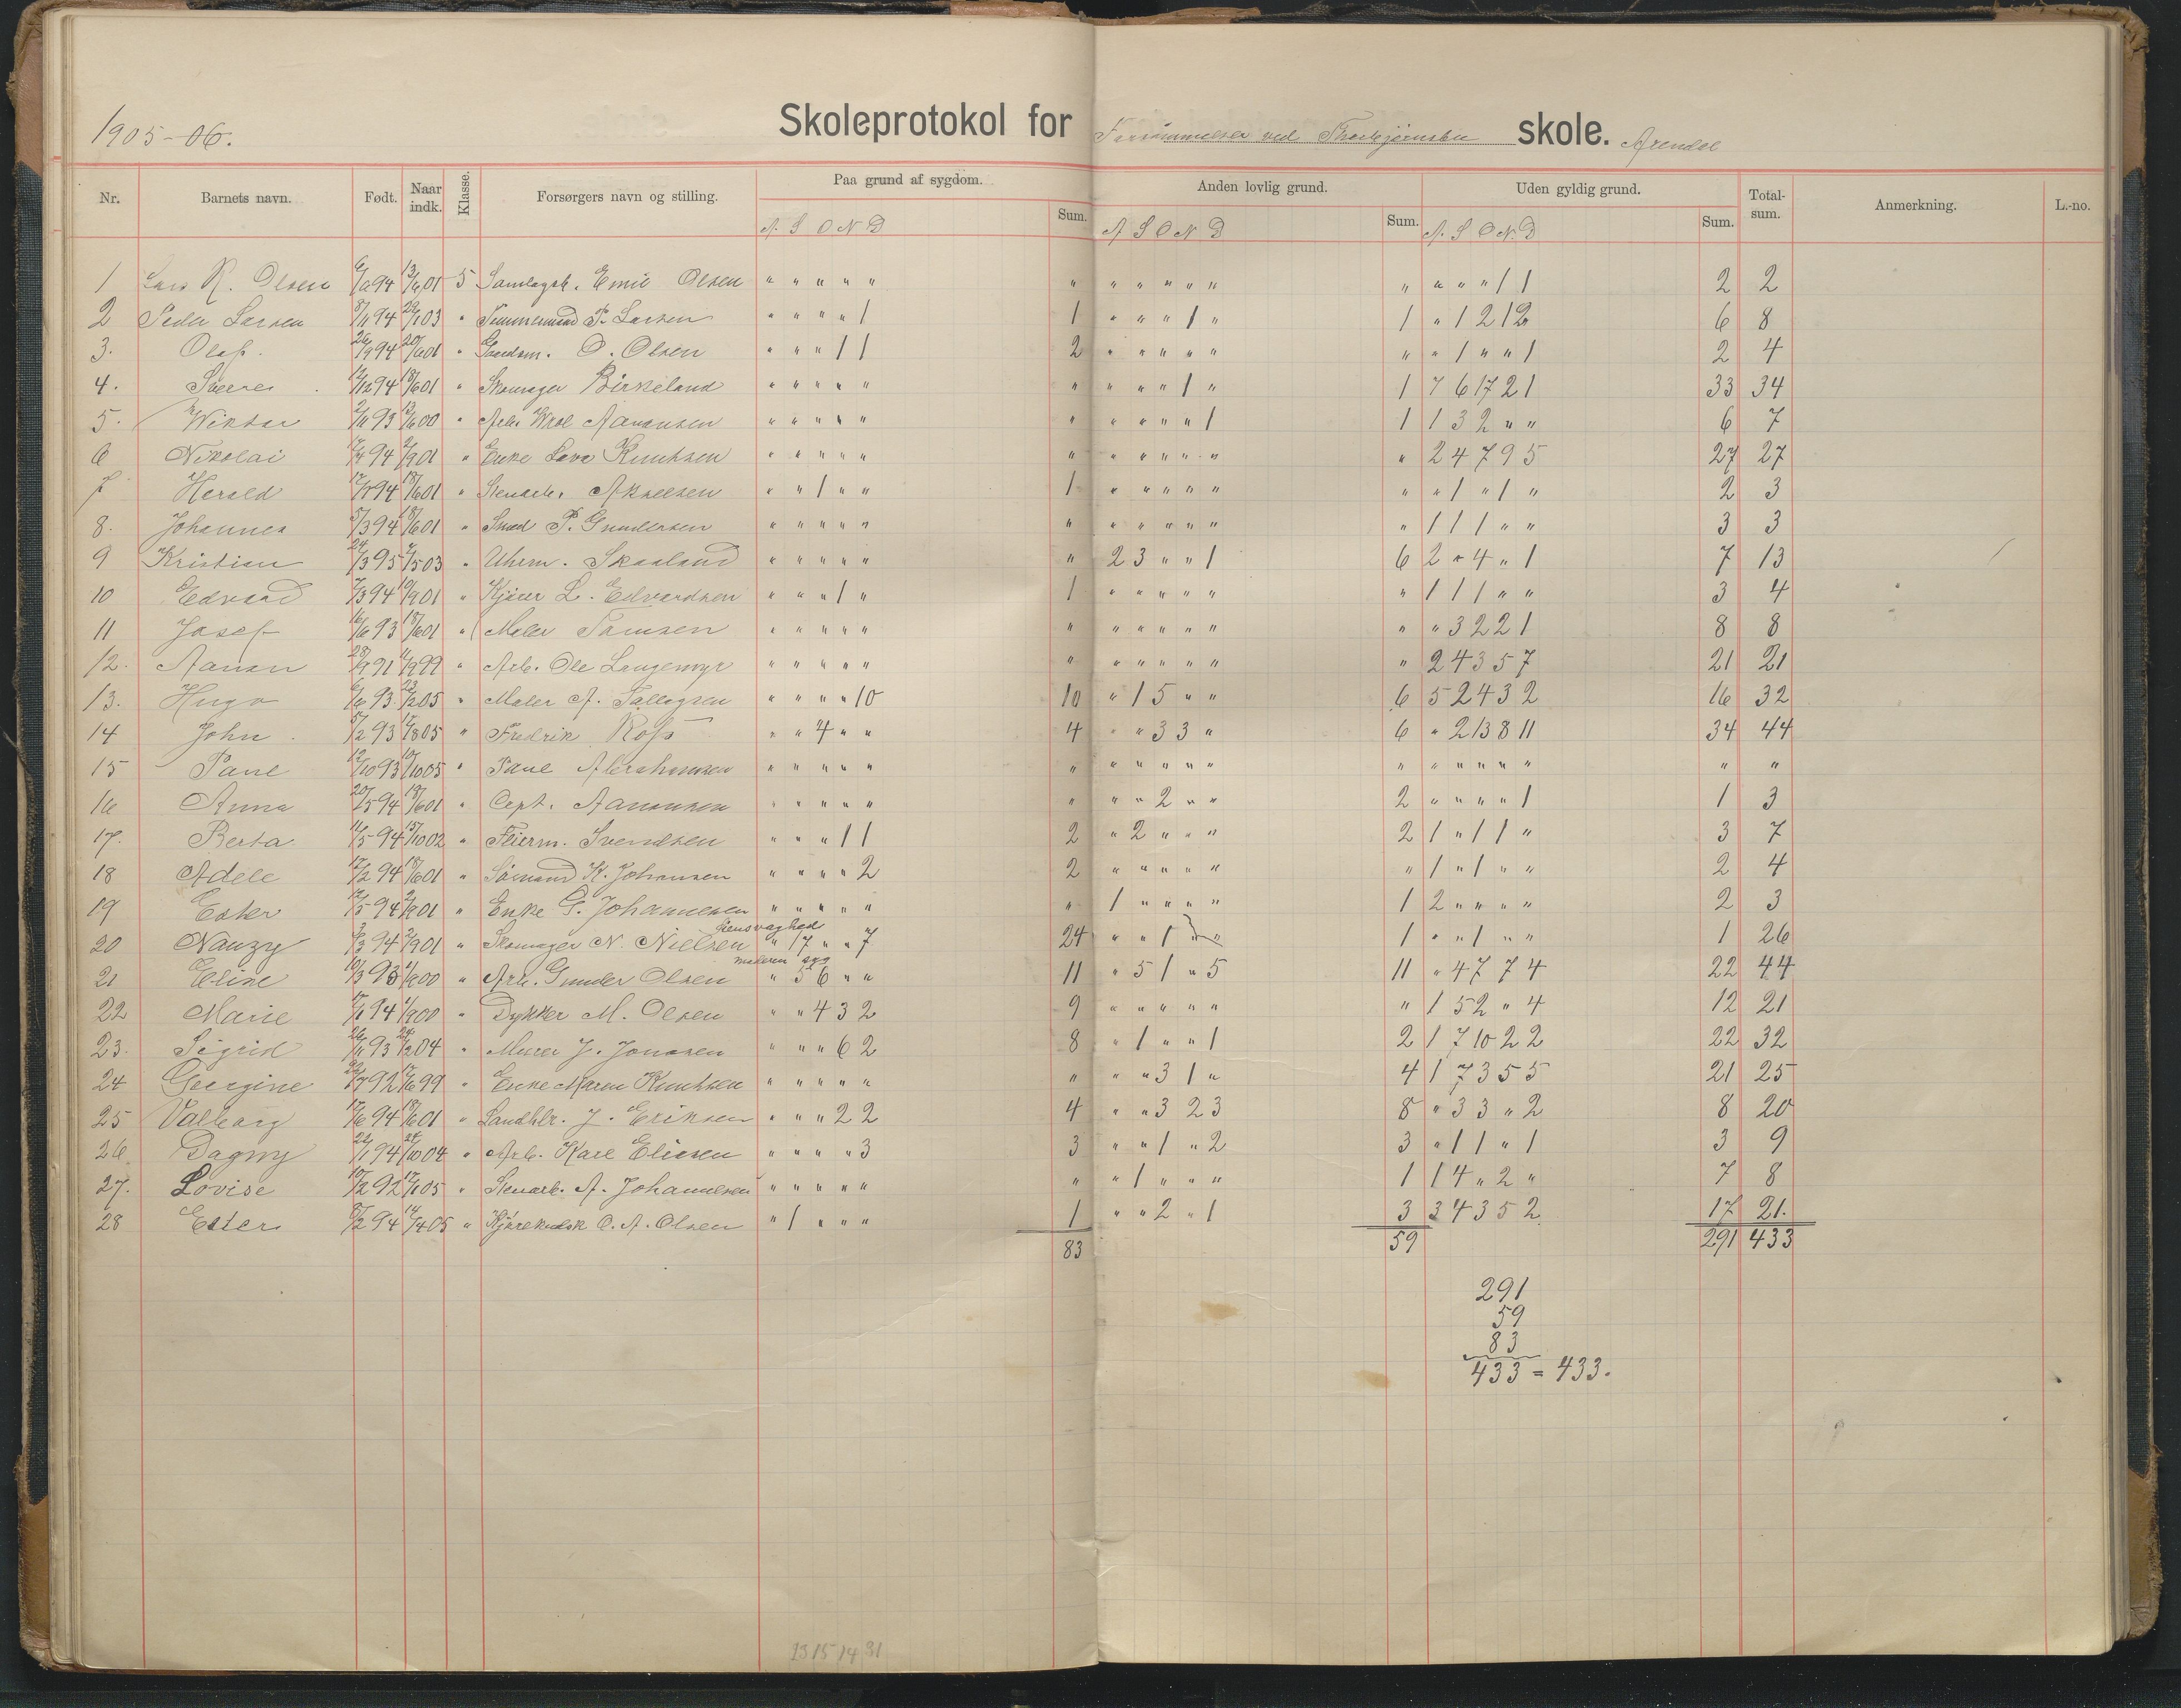 1905-06.
Skoleprotokol for Forsømmelser ved Thorbjørnsbu skole. Arendal
Nr. Barnets navn. Født. Naar indk. Klasse. Forsørgers navn og stilling. Paa grund af sygdom. Sum. Anden lovlig grund. Sum. Uden gyldig grund. Sum. Total-sum. Anmerkning. L.-no.
A. S O N D A S O N D A. S O N. D
1 Lars R. Olsen 13/6 01 5 Samlagsb. Emil Olsen " " " " " " " " " " " " " " " 1 1 2 2
2 Peder Larsen 8/11 94 29/1 03 " Tømmermand P. Larsen " " " " 1 1 " " " 1 " 1 " 1 2 1 2 6 8
3. Olaf. 26/9 94 20/6 01 " O. Olsen " " " 1 1 2 " " " " " " " 1 " " 1 2 4
4. Sverre 12/12 94 18/6 01 " Skomager Birkeland " " " " " " " " " 1 " 1 7 6 17 2 1 33 34
5. Wiktor 2/11 93 13/6 00 " Aanonsen " " " " " " " " " " 1 1 1 3 2 " " 6 7
6 Nikolai 94 2/9 01 " Enke Knuhsen " " " " " " " " " " " " 2 4 7 9 5 27 27
7 Harald 94 18/6 01 " Stenarb. Akselsen " " 1 " " 1 " " " " " " " 1 " 1 " 2 3
8. Johannes 5/3 94 18/6 01 " Smed P. Gundersen " " " " " " " " " " " " 1 1 1 " " 3 3
9 Kristian 24/3 95 4/5 03 " Uhrm. Skaaland " " " " " " 2 3 " " 1 6 2 " 4 " 1 7 13
10 Edvard 7/3 94 10/9 01 " Kjører L. Edvardsen " " " 1 " 1 " " " " " " 1 1 1 " " 3 4
11 Josef 16/6 93 18/6 01 " Maler Tomsen " " " " " " " " " " " " " 3 2 2 1 8 8
12. Aanon 28/9 91 11/9 99 " Arb. Ole Langemyr " " " " " " " " " " " " 2 4 3 5 7 21 21
13. Hugo 6/6 93 23/2 05 " Maler A. Tallagsen " " " " 10 10 " 1 5 " " 6 5 2 4 3 2 16 32
14 John 5/2 93 17/8 05 " Fredrik Rofs " " 4 " " 4 " " 3 3 " 6 " 2 13 8 11 34 44
15 Paul 12/10 93 10/10 05 " Paul Abrahamsen " " " " " " " " " " " " " " " " " " "
16 Anna 20/5 94 18/6 01 " Capt. Aanonsen " " " " " " " " 2 " " 2 " " " " 1 1 3
17. Berta 11/5 94 15/10 02 " Feierm. Svendsen " " " 1 1 2 " 2 " " " 2 1 " 1 1 " 3 7
18 Adele 17/2 94 18/6 01 " Sømand K. Johansen " " " " 2 2 " " " " " " 1 " 1 " " 2 4
19 Ester 12/5 94 2/9 01 " Enke G. Johannesen " " " " " " 1 " " " " 1 2 " " " " 2 3
øiensvaghed
20 Nanzy 3/3 94 2/9 01 " Skomager N. Nielsen " 17 " " 7 24 " " 1 " " 1 " " 1 " " 1 26
moderen syg
21 Eline 10/3 93 1/9 00 " Arb. Gunder Olsen " 5 6 " " 11 " 5 1 " 5 11 " 4 7 7 4 22 44
22 Marie 94 1/9 00 " Dykker M. Olsen " " 4 3 2 9 " " " " " " 1 5 2 " 4 12 21
23. Sigrid 26/11 93 24/2 04 " Murer J. Jonasen " " " 6 2 8 " 1 " " 1 2 1 7 10 2 2 22 32
24 Georgine 92 17/6 99 " Enke Maren Knuhsen " " " " " " " " 3 1 " 4 1 7 3 5 5 21 25
25 Valborg 17/6 94 18/6 01 " Landhlr. J. Eriksen " " " 2 2 4 " " 3 2 3 8 " 3 3 " 2 8 20
26 Dagny 22/1 94 24/10 04 " Arb. Karl Eliesen " " " " 3 3 " " 1 " 2 3 " 1 1 " 1 3 9
27. Lovise 10/2 92 05 " Stenarb. A. Johannesen " " " " " " " 1 " " " 1 1 4 " 2 " 7 8
28 Ester 8/2 94 19/4 05 " Kjørekudsk O. A. Olsen " 1 " " " 1 " " 2 " 1 3 3 4 3 5 2 17 21.
83 59 291 433
291
59
83
433 = 433.
13 15 14 31